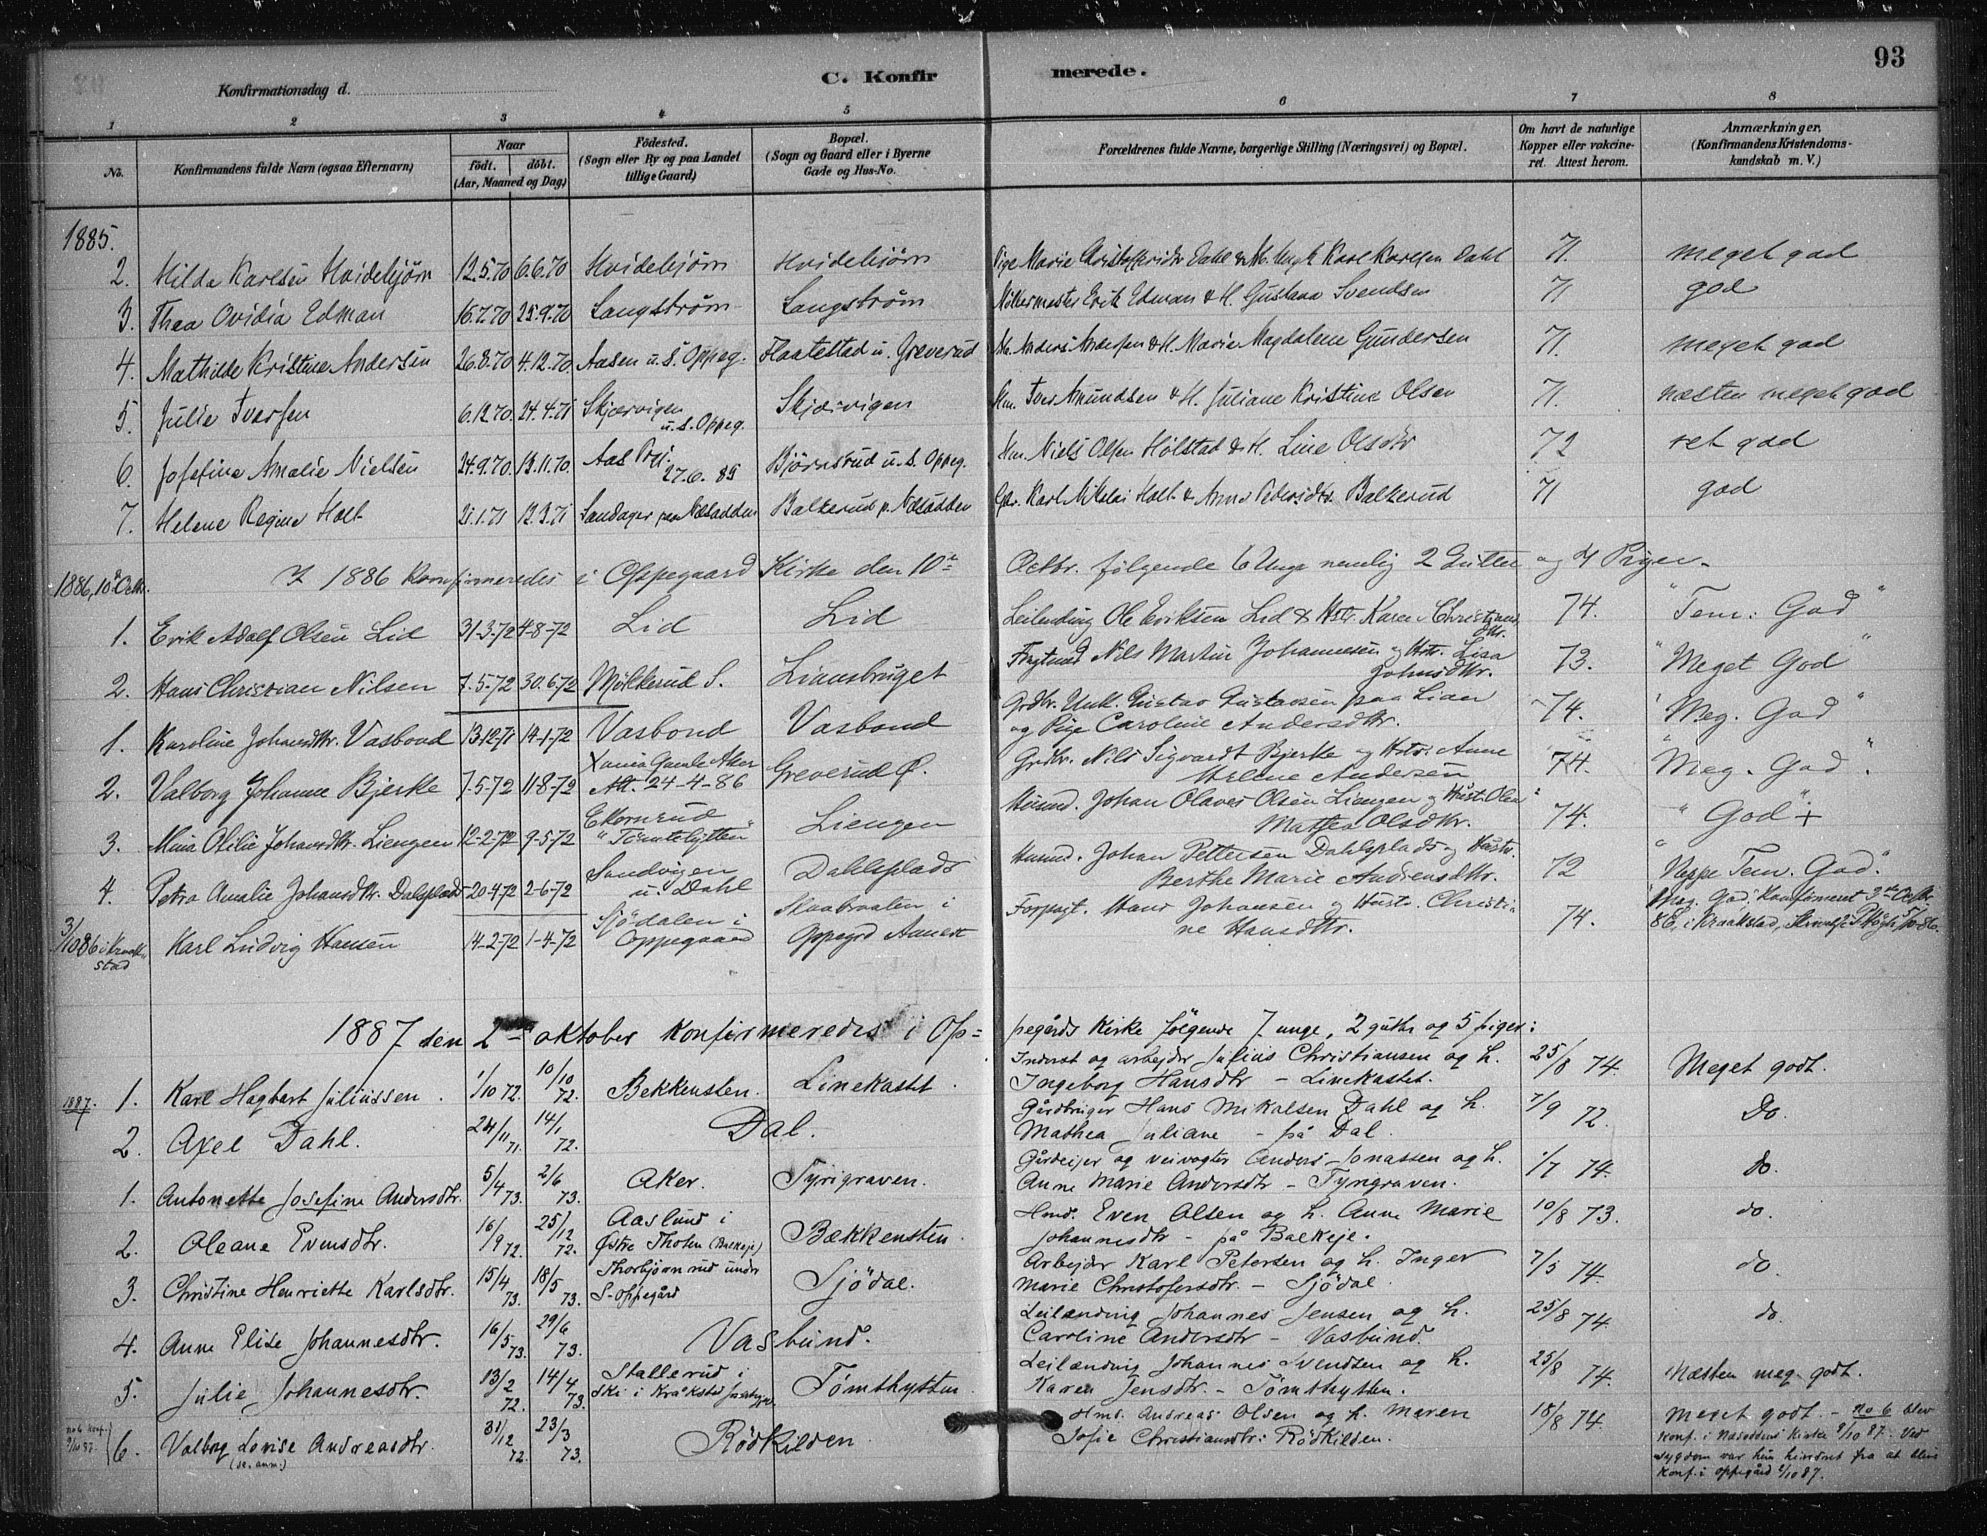 93
C. Konfirmerede.
Konfirmationsdag d.
1 2 3 4 5 6 7 8
No.
Konfirmandens fulde Navn (ogsaa Efternavn)
Naar
födt. döbt.
(Aar, Maaned og Dag)
Födested.
(Sogn eller By og paa Landet
tillige Gaard)
Bopæl.
(Sogn og Gaard eller i Byerne
Gade og Hus-No.
Forældrenes fulde Navne, borgerlige Stilling (Næringsvei) og Bopæl.
Om havt de naturlige
Kopper eller vakcine-
ret. Attest herom.
Anmærkninger.
(Konfirmandens Kristendoms-
kundskab m. V.)
1885.
2. Hilda Karlsen Hvidebjörn 12.5.70 6.6.70 Hvidebjörn Hvidebjörn Pige Marie Dahl Karl Karlsen Dahl 71. meget god
3. Thea Ovidia Edman 16.7.70 25.9.70 Langstrøm Langstrøm Erik Edman & H. Gustava Svendsen 71 god
4. Mathilde Kristine Andersen 26.8.70 4.12.70 Aasen u. S. Oppeg. Flaatestad u. Greverud Anders Andersen & H. Marie Magdalene Gundersen 71. meget god
5. Julie Iversen 6.12.70 24.4.71 Skjærvigen u. S. Oppeg. Skjærvigen Hm. Iver Amundsen & H. Juliane Kristine Olsen 71. næsten meget god
6. Josefine Amalie Nielsen 24.9.70 13.11.70 Aas 27.6.85 Bjørnsrud u. S. Oppeg. Hm. Niels Olsen Holstad & H. Line Olsdtr 72 ret god
7. Helene Regine Holt 21.1.71 12.3.71 Sandager paa Næsodden Balkerud p. Næsodden Karl Nikolai Holt & Anne Pedersdtr Balkerud 71 god
1886, 10de Octbr. I 1886 konfirmeredes i Oppegaard Kirke den 10de Octbr. følgende 6 Unge nemlig 2 Gutter og 4 Piger.
1. Erik Adolf Olsen Lid 31-3-72 4-8-72 Lid Lid Leilending Ole Eriksen Lid & Hstr. Karen Christians dtr. 74. "Tem: God"
2. Hans Christian Nilsen 7-5-72 30.6.72 Mölkerud S. Liansbruget Nils Martin Johannesen og Hstr. Lisa Johnsdtr. 73. "Meget God"
1. Karoline Johansdtr. Vasbond 13-12-71 14-1-72 Vasbond Vasbond Gustav Gustavsen paa Lian og Pige Caroline Andersdtr. 74. "Meg. God"
2. Valborg Johanne Bjerke 7-5-72 11-8-72 Xania Gamle Aker Att. 24-4-86 Greverud Ø. Grdbr. Nils Sigvardt Bjerke og Hstr. Anne Helene Andersen 74. "Meg. God."
3. Mina Otilie Johansdtr. Liengen 12-2-72 9-5-72 Ekornrud "Tömtehytten" Liengen Husmd. Johan Olaves Olsen Liengen og Hust. Olea Mathea Olsdtr. 74. "God" +
4. Petra Amalie Johansdtr. Dalsplads 20-4-72 2-6-72 Sandvigen u. Dahl Dahlsplads Husmd. Johan Pettersen Dahlsplads og Hustr. Berthe Marie Andreasdtr. 72 "Neppe Tem. God."
3/10 86 i Kraakstad Karl Ludvig Hansen 14-2-72 1-4-72 Sjödalen i Oppegaard Oppegrd Annex Forpagt. Hans Johansen og Hustr. Christiane Hansdtr. 74. "Meg. God," Konfirmeret 3die Octbr. 86, i Kraakstad,
1887 den 2den oktober konfirmeredes i Oppegårds Kirke følgende 7 unge, 2 gutter og 5 piger:
1887. 1. Karl Hagbart Juliussen. 1/10 72. 10/10 72. Bekkensten. Linekastet. Inderst og arbejder Julius Christiansen og h. Ingeborg Hansdtr – Linekastet. 25/8 74. Meget godt.
2. Axel Dahl. 24/11 71. 14/1 72. Dal. Gårdbruger Hans Mikalsen Dahl og h. Mathea Juliane – på Dal. 7/9 72. Do.
1. Antonette Josefine Andersdtr. 5/4 73. 2/6 73. Aker. Tyrigraven. Gårdeier og veivogter Anders Jonassen og h. Anne Marie Andersdtr – Tyrigraven. 1/7 74. do.
2. Oleane Evensdtr. 16/9 72. 25/12 72. Aaslund i Østre Thoten (Balkeje) Bækkensten. Hmd. Even Olsen og h. Anne Marie Johannesdtr – på Balkeje. 10/8 73. do.
3. Christine Henriette Karlsdtr. 15/4 73. 18/5 73. Thorbjørnrud under S-oppegård Sjödal. Arbejder Karl Petersen og h. Inger Marie Christofersdtr – Sjödal. 7/5 74. do
4. Anne Elise Johannesdtr. 16/5 73. 29/6 73. Vasbund. Leilænding Johannes Jensen og h. Caroline Andersdtr – Vasbund. 25/8 74. do.
5. Julie Johannesdtr. 13/2 72. 14/4 73. Stallerud i Ski i Kråkstad Tömthytten Leilænding Johannes Svendsen og h. Karen Jensdtr. – Tömthytten. 25/8 74. Næsten meg. godt.
no 6 konf. 9/10 87. 6. Valborg Lovise Andreasdtr. (se. anm.) 31/12 72. 23/3 73. Rödkilden Hmd. Andreas Olsen og h. Maren Sofie Christiansdtr: Rödkilden. 18/8 74 Meget godt. – no 6 blev konf. i Næsoddens Kirke 9/10 87. Ved sygdom var hun hindret fra at blive konf. i oppegård 2/10 87.